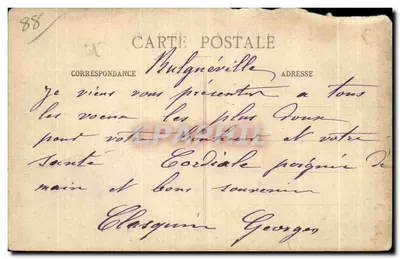 88
CARTE POSTALE
CORRESPONDANCE Bulgnéville ADRESSE
Je viens vous présenter a tous
les voeux les plus doux
pour votre bonheur et votre
santé Cordiale poignée de
main et bons souvenir
Clasquin Georges